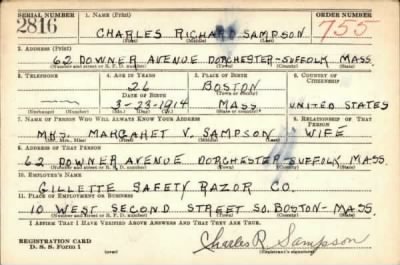 SERIAL NUMBER 1. NAME (Print) ORDER NUMBER
2816 CHARLES RICHARD SAMPSON 755
(First) (Middle) (Last)
2. ADDRESS (Print)
62 DOWNER AVENUE DORCHESTER-SUFFOLK MASS.
(Number and street or R. F. D. number) (Town) (County) (State)
3. TELEPHONE 4. AGE IN YEARS 5. PLACE OF BIRTH 6. COUNTRY OF CITIZENSHIP
26 BOSTON
DATE OF BIRTH (Town or county)
3-23-1914 MASS UNITED STATES
(Exchange) (Number) (Mo.) (Day) (Yr.) (State or country)
7. NAME OF PERSON WHO WILL ALWAYS KNOW YOUR ADDRESS 8. RELATIONSHIP OF THAT PERSON
MRS. MARGARET V. SAMPSON WIFE
(Mr., Mrs., Miss) (First) (Middle) (Last)
9. ADDRESS OF THAT PERSON
62 DOWNER AVENUE DORCHESTER-SUFFOLK MASS.
(Number and street or R. F. D. number) (Town) (County) (State)
10. EMPLOYER'S NAME
GILLETTE SAFETY RAZOR CO.
11. PLACE OF EMPLOYMENT OR BUSINESS
10 WEST SECOND STREET SO. BOSTON-MASS.
(Number and street or R. F. D. number) (Town) (County) (State)
I AFFIRM THAT I HAVE VERIFIED ABOVE ANSWERS AND THAT THEY ARE TRUE.
REGISTRATION CARD
D. S. S. Form 1
Charles R. Sampson